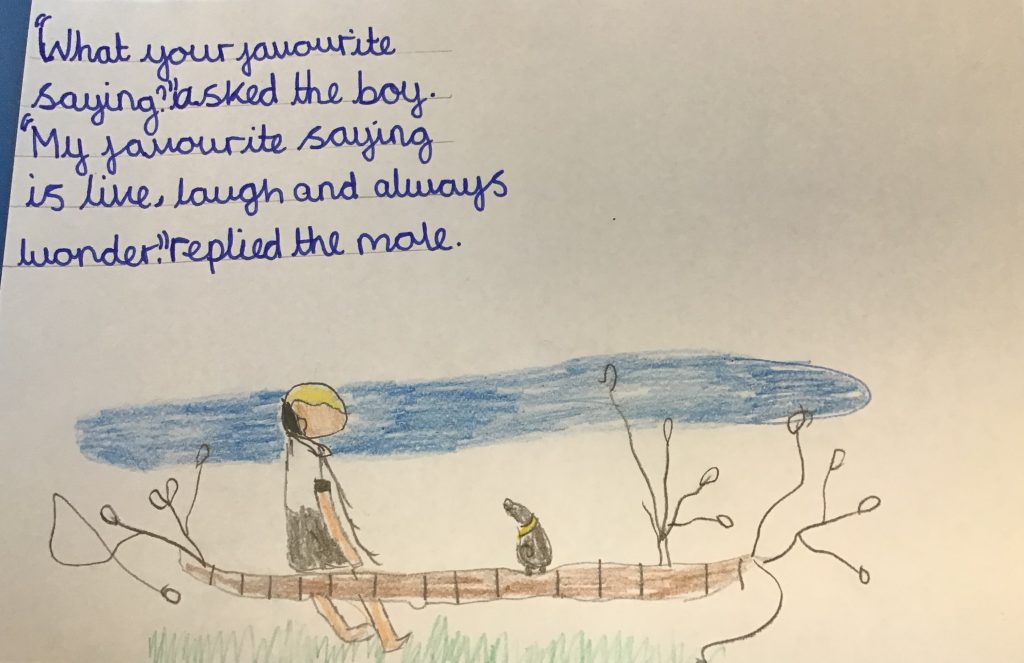 "What your favourite
saying?" asked the boy.
"My favourite saying
is live, laugh and always
wonder." replied the mole.